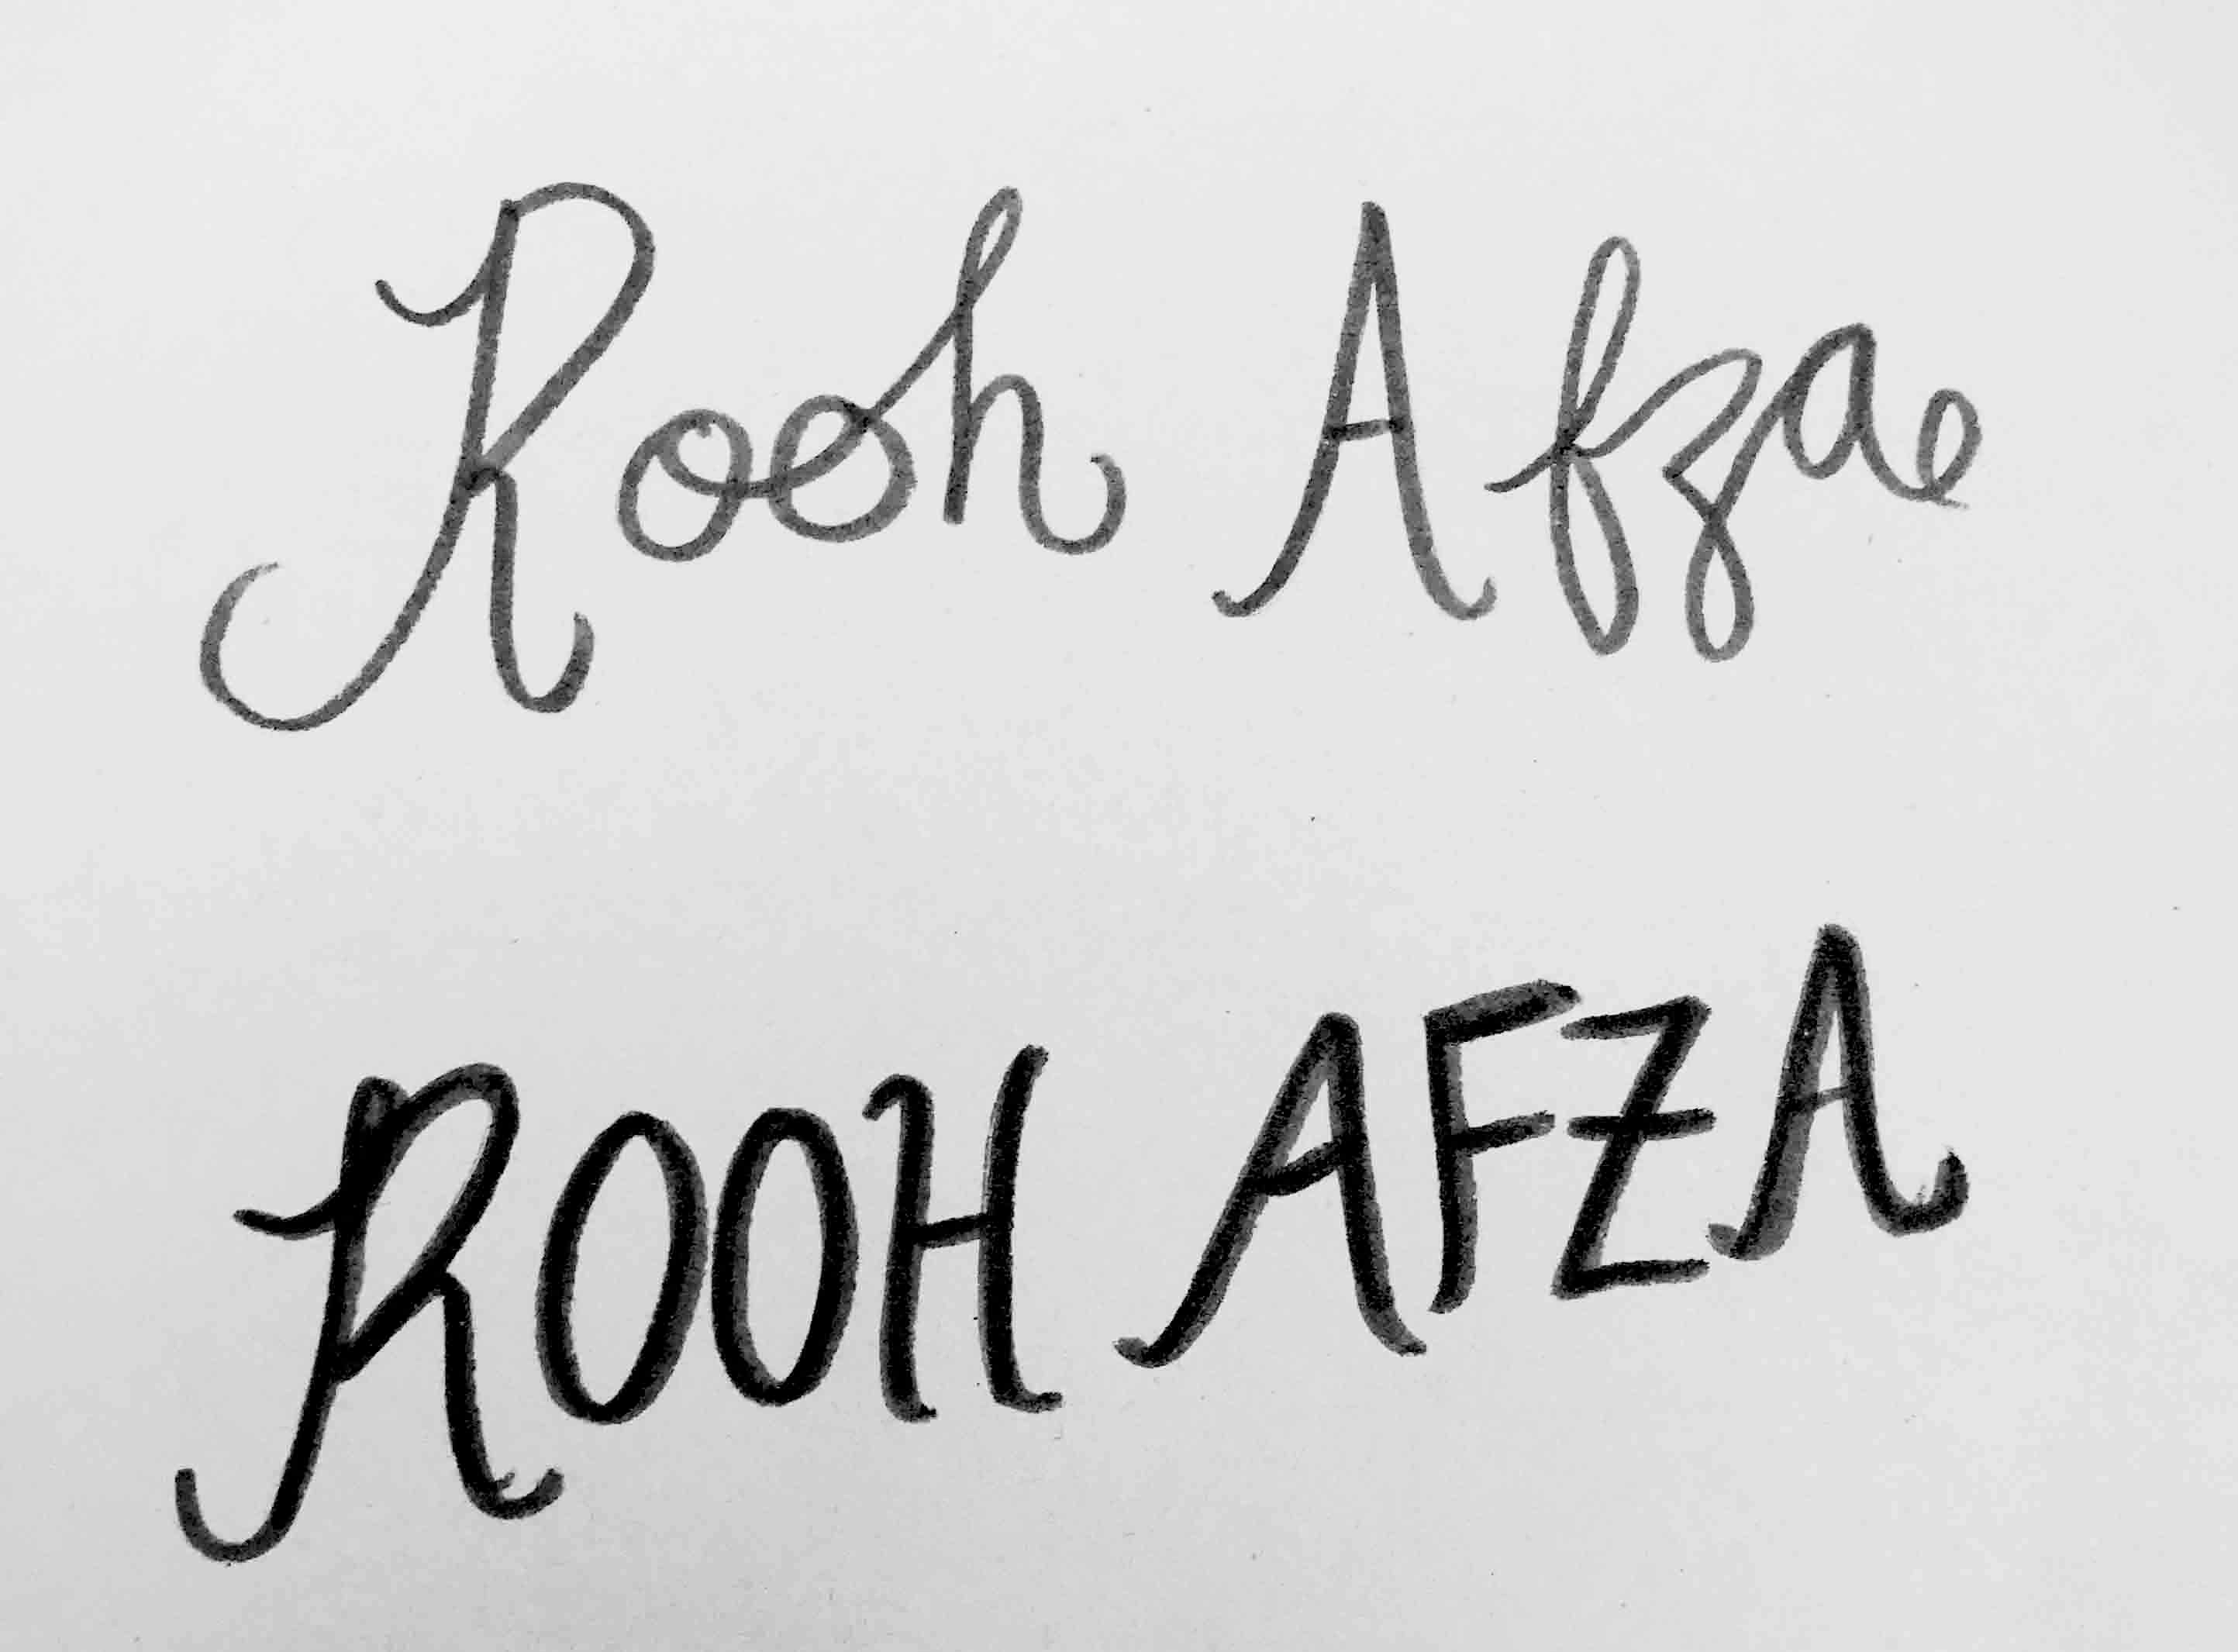 Rooh Afza
ROOH AFZA